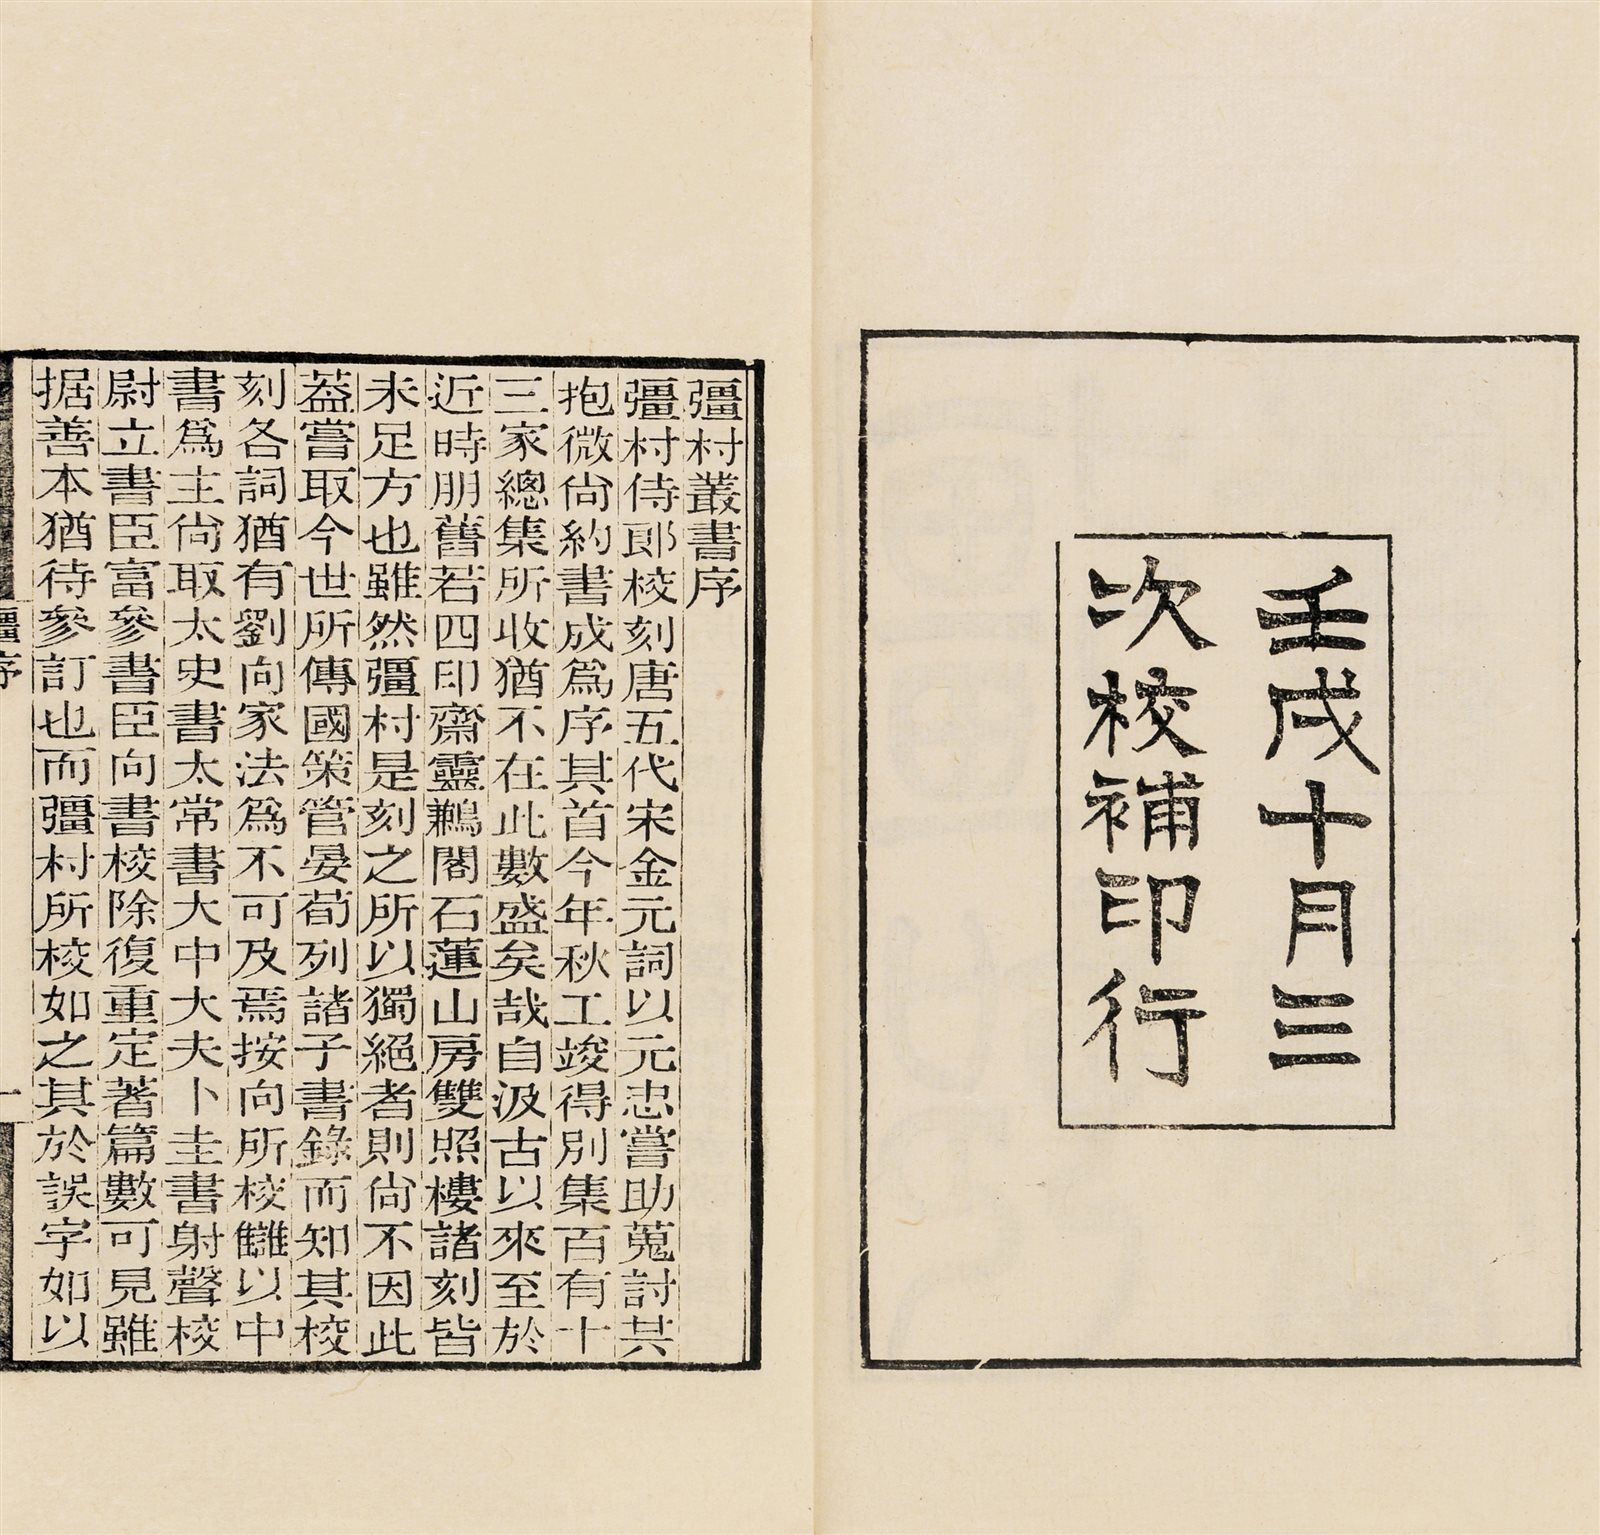 壬戌十月三
次校補印行
彊村叢書序
彊村侍郎校刻唐五代宋金元詞以元忠嘗助蒐討其
抱微尙約書成爲序其首今年秋工竣得別集百有十
三家總集所收猶不在此數盛矣哉自汲古以來至於
近時朋舊若四印齋靈鶼閣石蓮山房雙照樓諸刻皆
未足方也雖然彊村是刻之所以獨絕者則尙不因此
葢嘗取今世所傳國策管晏荀列諸子書錄而知其校
刻各詞猶有劉向家法爲不可及焉按向所校讎以中
書爲主尙取太史書太常書大中大夫卜圭書射聲校
尉立書臣富參書臣向書校除復重定著篇數可見雖
据善本猶待參訂也而彊村所校如之其於誤字如以
彊序
一